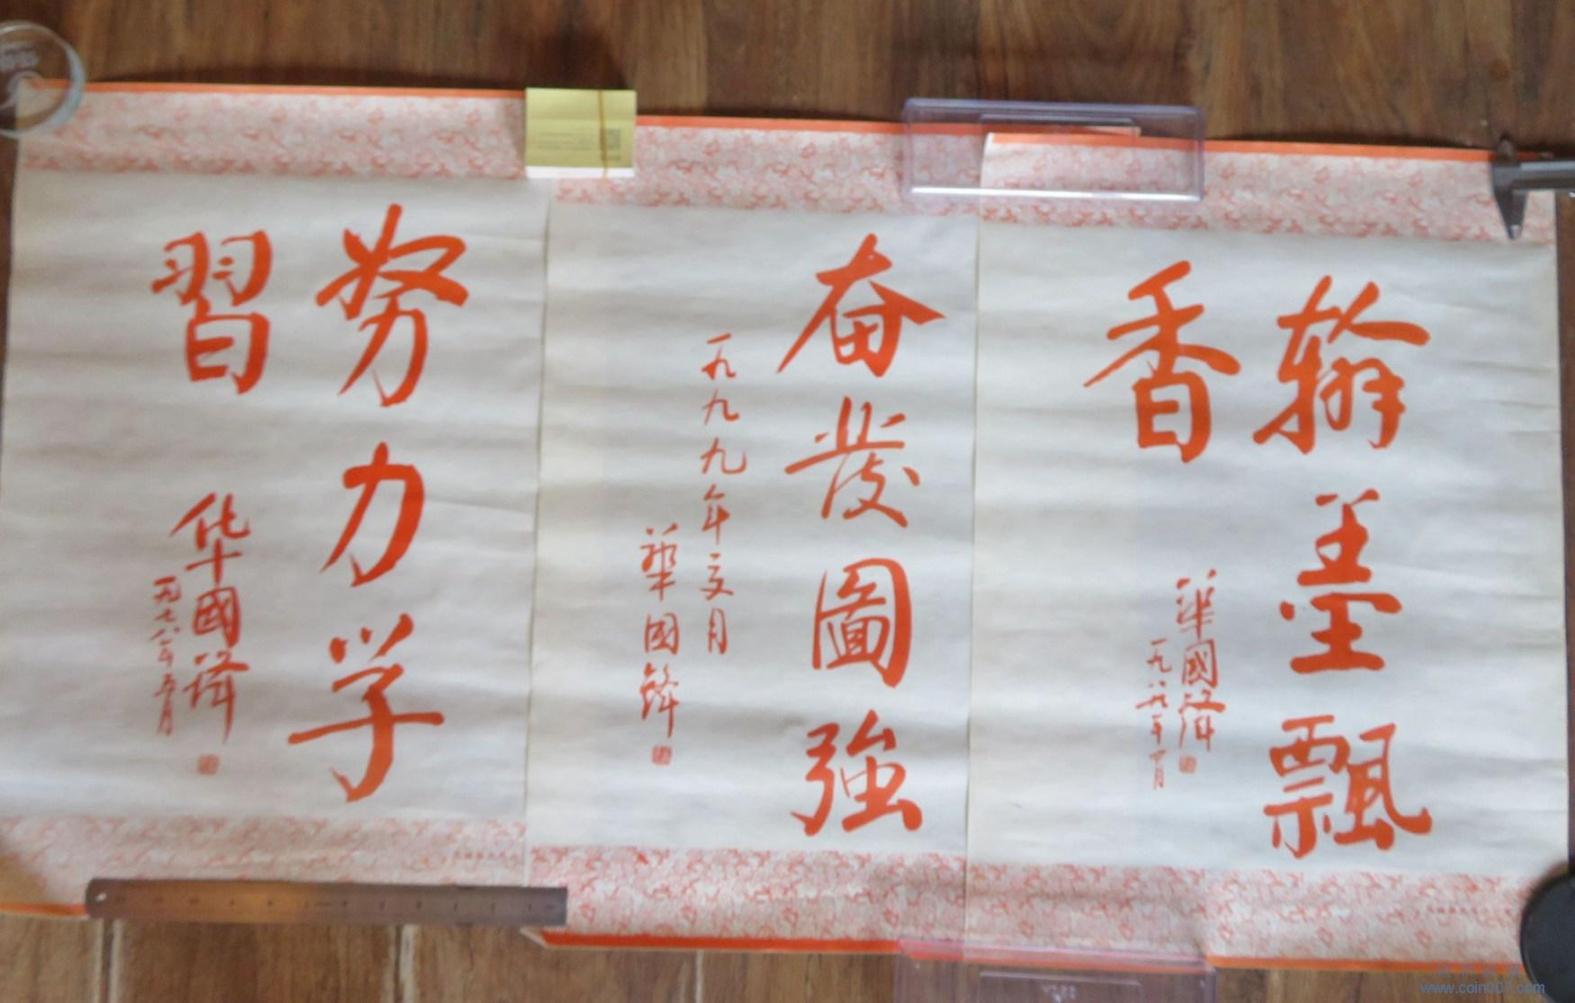 翰墨飄
香
華國鋒
一九八六年十月
奋發圖強
一九九九年六月
華國鋒
努力学
習
华國鋒
一九七八年五月
www.coin007.com